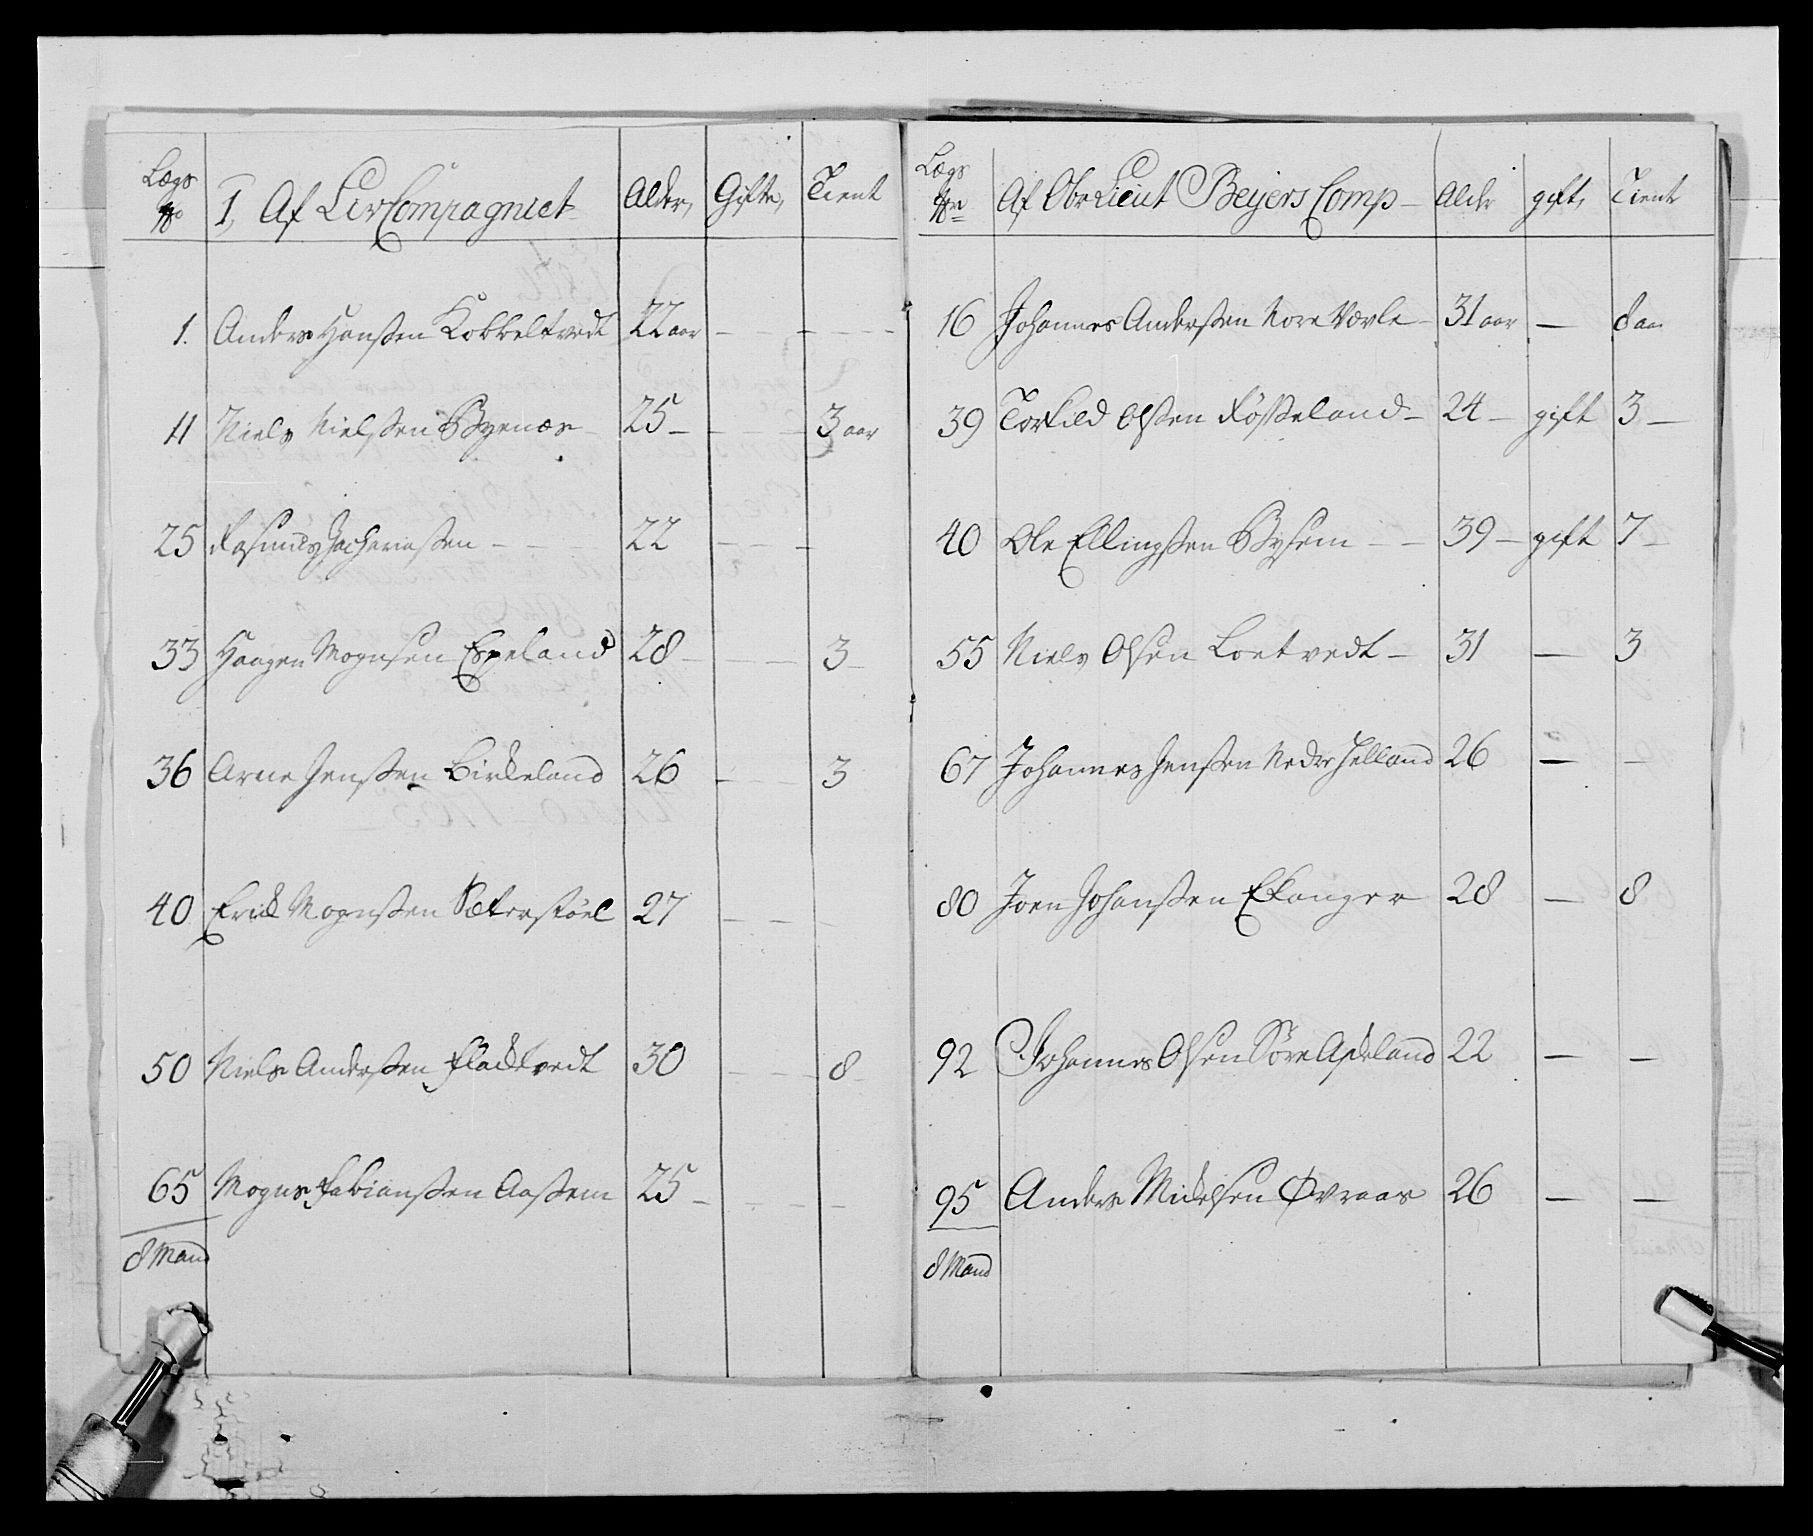 Lægs No 1, Af LivCompagniet Alder, Gifte, Tient
1. Anders Hanßen Kobbeltvedt 22 aar — — — —
11 Niels Nielßen Bynæs 25 — — — 3 aar
25 Rasmus Zachariaßen — — 22 — — —
33 Haagen Mognsen Espeland 28 — — — 3 —
36 Arne Jenßen Birkeland 26 — — 3
40 Erick Mognßen Sæterstöel 27 — — —
50 Niels Anderßen Flacktvedt 30 — — 8
65 Mogns Fabianßen Aaßem 25 — — — —
8 Mand
Lægs No Af Obr Lieut Beyers Comp — Alder gift, Tient
16 Johannes Anderßen Nore Værle — 31 aar — 8 aar
39 Torkild Olßen Rößeland — 24 — gift 3 —
40 Ole Ellingßen Bysem — — 39 — gift 7 —
55 Niels Olsen Loetvedt — 31 — 3
67 Johannes Jenßen Nedre Helland 26 — —
80 Joen Johanßen Ekanger 28 — 8
92 Johannes Olsen Söre Apeland 22 — —
95 Anders Mickelsen Øvraas 26 — —
8 Mand